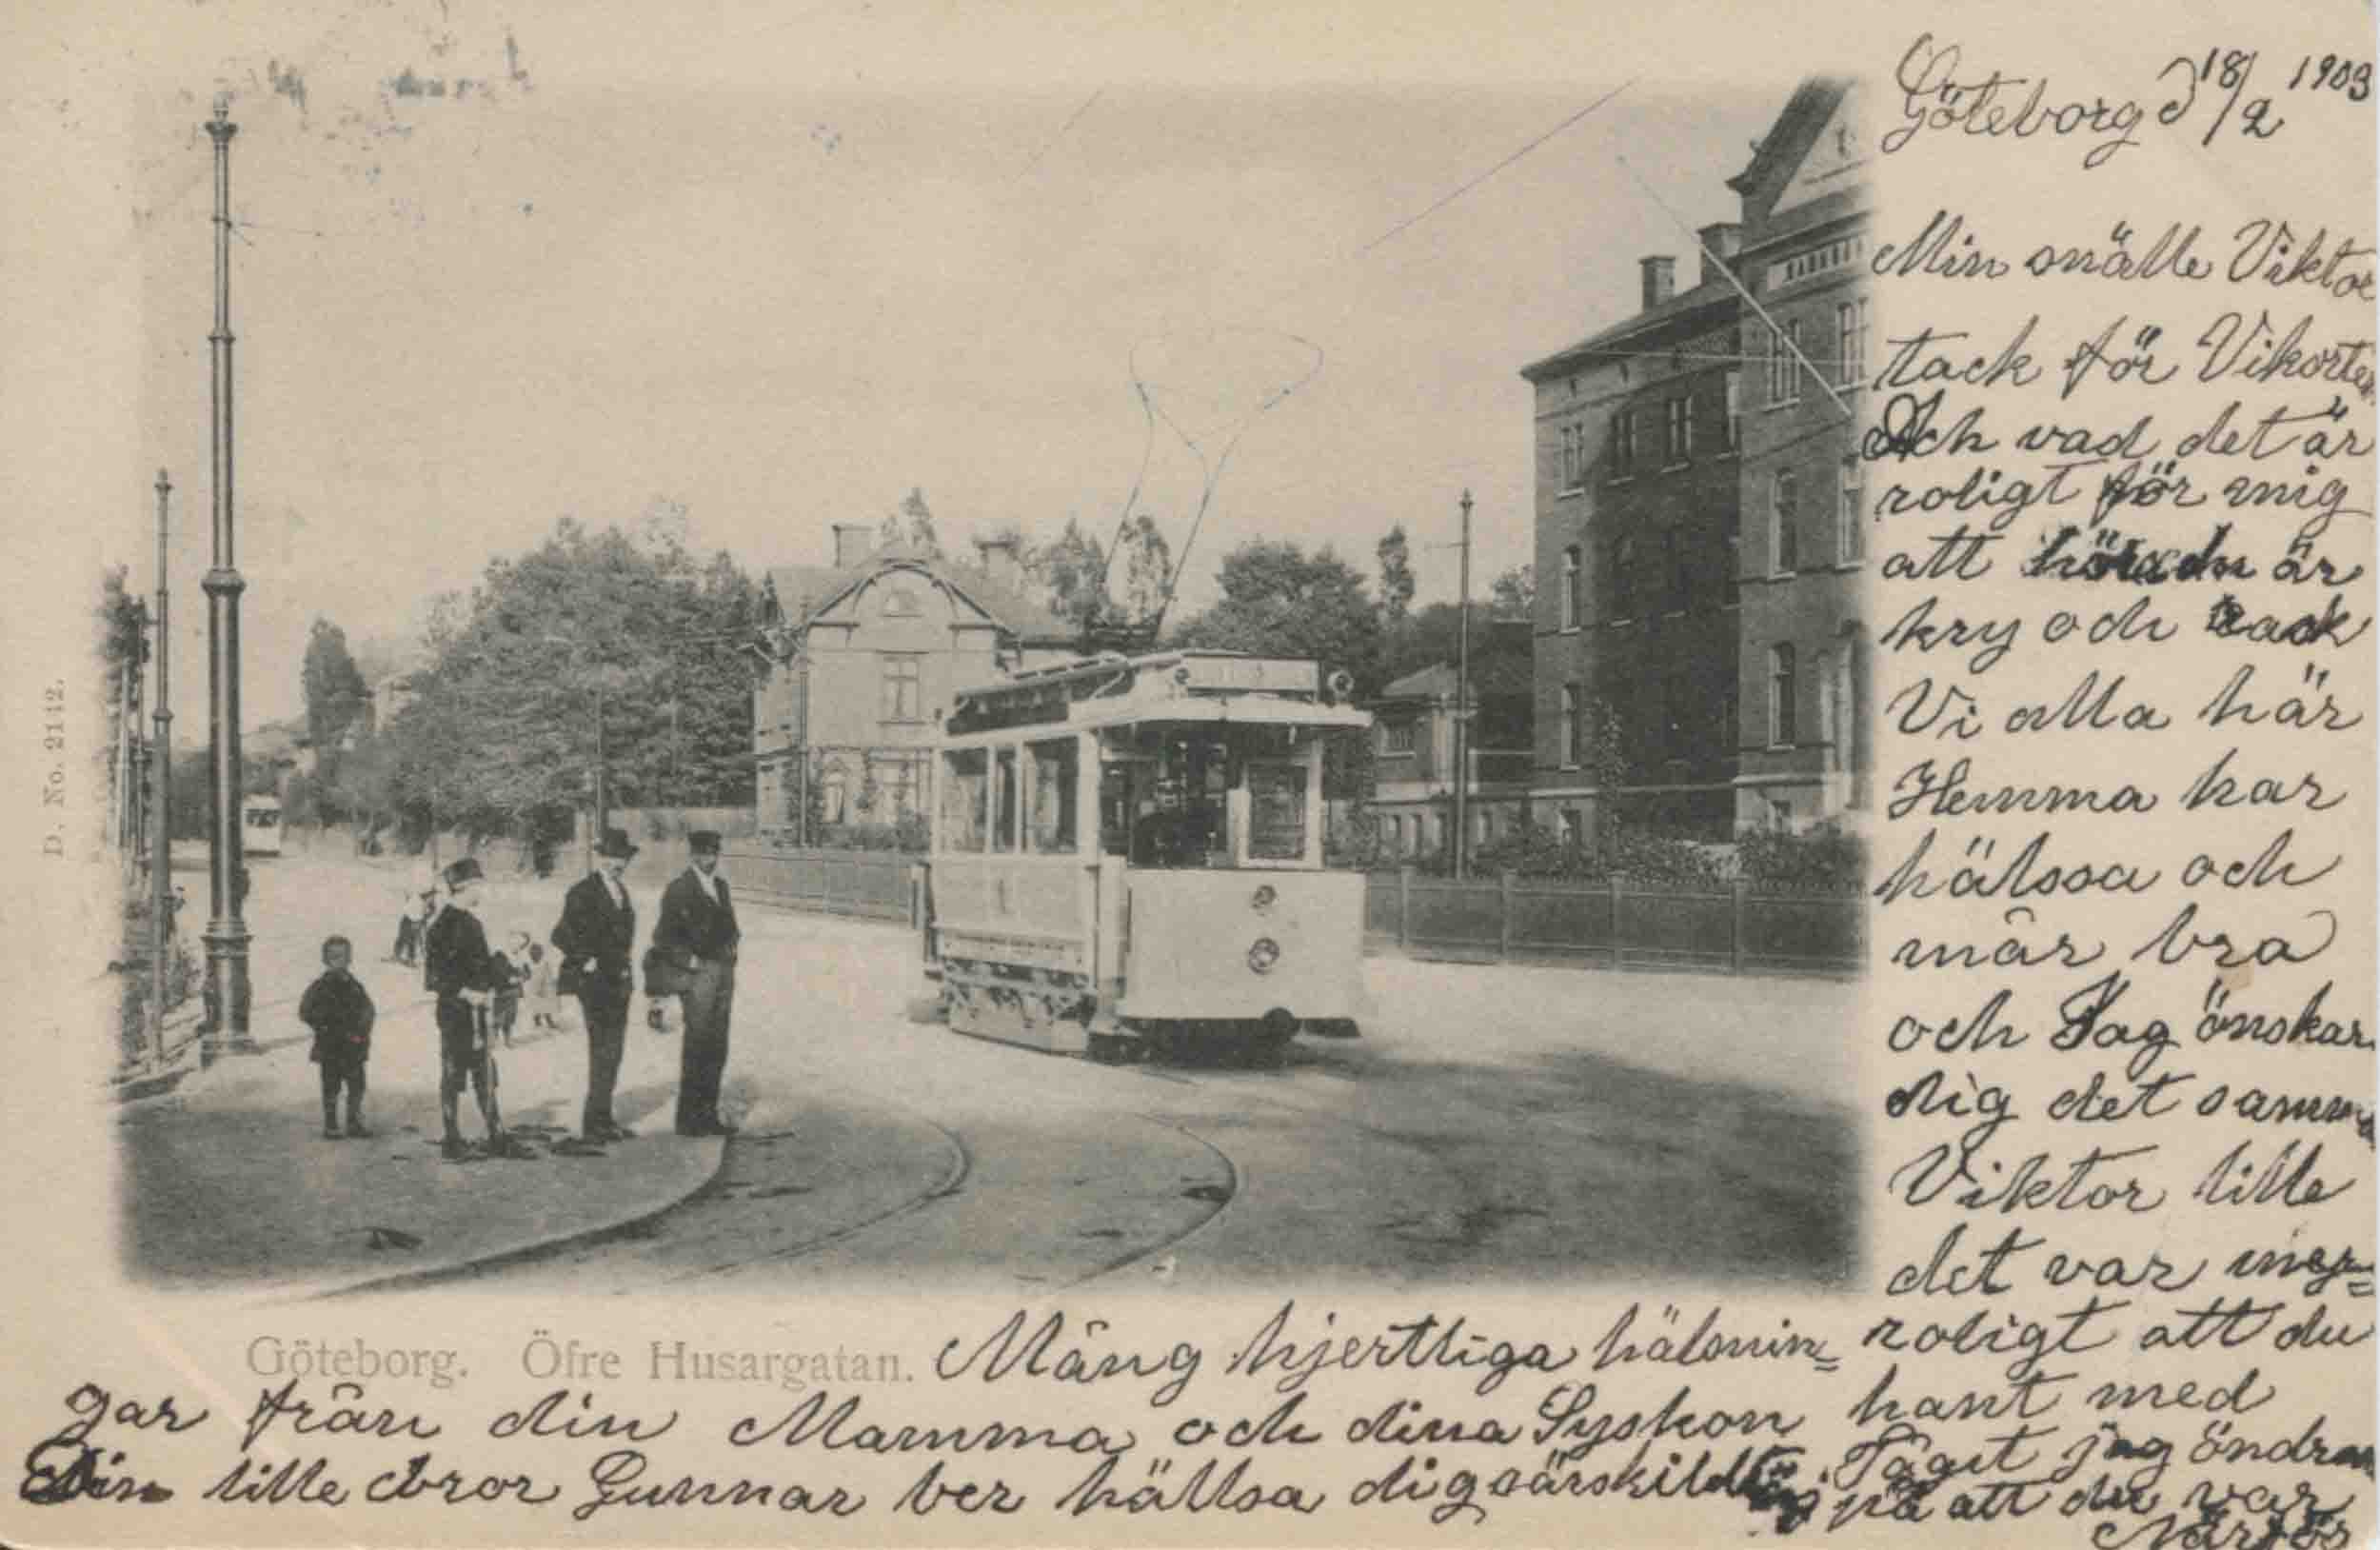 Göteborg d 18/2 1903
Min snälle Viktor
tack för Vikorten
Ach vad det är
roligt för mig
att höra du är
kry och rask
Vi alla här
Hemma har
hälsoa och
mår bra
och Jag önskar
dig det samma
Viktor lille
det var myc=
roligt att du
hant med
Tåget jag öndra
på att du var
D. No. 2142.
Göteborg. Öfre Husargatan.
Mång hjertliga hälsnin=
gar från din Mamma och dina Syskon
Din lille bror Gunnar ber hällsa dig särskildt